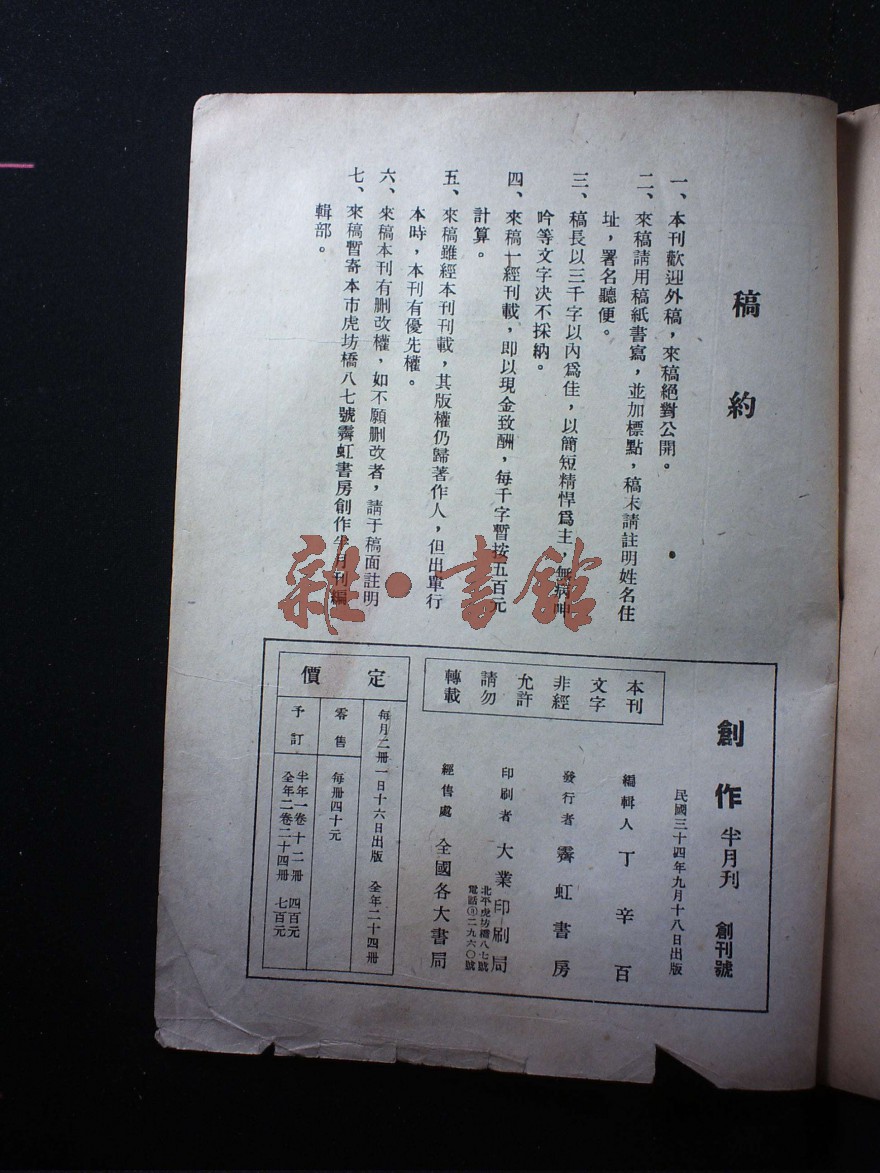 稿約
一、本刊歡迎外稿，來稿絕對公開。
二、來稿請用稿紙書寫，並加標點，稿末請註明姓名住
址，署名聽便。
三、稿長以三千字以內爲佳，以簡短精悍爲主，無病呻
吟等文字决不採納。
四、來稿一經刊載，即以現金致酬，每千字暫按五百元
計算。
五、來稿雖經本刊刊載，其版權仍歸著作人，但出單行
本時，本刊有優先權。
六、來稿本刊有删改權，如不願删改者，請于稿面註明
七、來稿暫寄本市虎坊橋八七號霽虹書房創作半月刊編
輯部。
雜·書館
創作半月刊 創刊號
民國三十四年九月十八日出版
編輯人 丁辛百
發行者 霽虹書房
印刷者 大業印刷局
北平虎坊橋八七號
電話⑶二九六〇號
經售處 全國各大書局
本刊
文字
非經
允許
請勿
轉載
定價
每月二冊一日十六日出版 全年二十四冊
零售 每冊四十元
予訂
半年一卷十二冊 四百元
全年二卷二十四冊 七百元